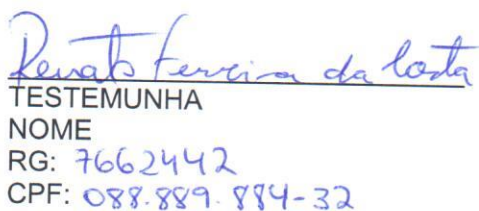 Renato Ferreira da Costa
TESTEMUNHA
NOME
RG: 7662442
CPF: 088.889.884-32